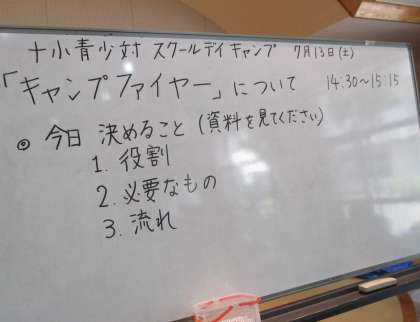 十小青少対 スクールデイキャンプ 7月13日(土)
「キャンプファイヤー」について 14:30～15:15
◎ 今日 決めること (資料を見てください)
1. 役割
2. 必要なもの
3. 流れ